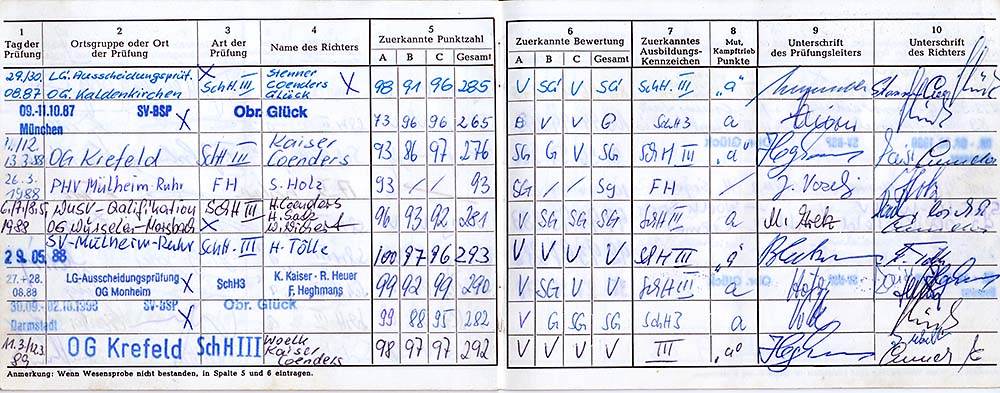 1 2 3 4 5 6 7 8 9 10
Tag der Prüfung Ortsgruppe oder Ort der Prüfung Art der Prüfung Name des Richters Zuerkannte Punktzahl A B C Gesamt Zuerkannte Bewertung A B C Gesamt Zuerkanntes Ausbildungs-Kennzeichen Mut, Kampftrieb Punkte Unterschrift des Prüfungsleiters Unterschrift des Richters
29./30. 08.87 LG. Ausscheidungsprüf. OG. Kaldenkirchen X SchH III Stenner Coenders Glück X 98 91 96 285 V SG V SG SchH III „a"
09.-11.10.87 München SV-BSP X Obr. Glück 73 96 96 265 B V V G SchH3
13.3.88 OG Krefeld SchH III Kaiser Coenders 93 86 97 276 SG G V SG SchH III „a"
26.3. 1988 PHV Mülheim-Ruhr FH S. Holz 93 / / 93 SG / / Sg FH /
1988 WUSV-Qalifikation OG Würselen-Morsbach SchH III X H. Coenders 96 93 92 281 V SG SG SG SchH III a
29.05.88 SV-Mülheim-Ruhr SchH. III H. Tölle 100 97 96 293 V V V V SchH III „a"
27.+28. 08.88 LG-Ausscheidungsprüfung OG Monheim X SchH3 K. Kaiser - R. Heuer F. Heghmans 99 92 99 290 V SG V V SchH III a
30.09.-02.10.1988 Darmstadt SV-BSP X Obr. Glück 99 88 95 282 V G SG SG SchH3 a
11.3/12.3 89 OG Krefeld SchH III Woelk Kaiser Coenders 98 97 97 292 V V V V III „a"
Anmerkung: Wenn Wesensprobe nicht bestanden, in Spalte 5 und 6 eintragen.